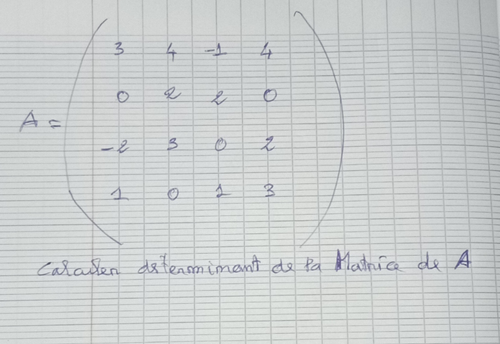 3 4 -1 4
0 2 2 0
A =
-2 3 0 2
1 0 1 3
determinant de la Matrice de A